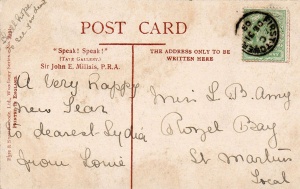 POST CARD
"Speak! Speak!"
(TATE GALLERY.)
Sir John E. Millais, P.R.A.
THE ADDRESS ONLY TO BE
WRITTEN HERE
A Very Happy
New Year
to dearest Lydia
from Louie
Miss L B. Amy
Rozel Bay
St Martins
Local